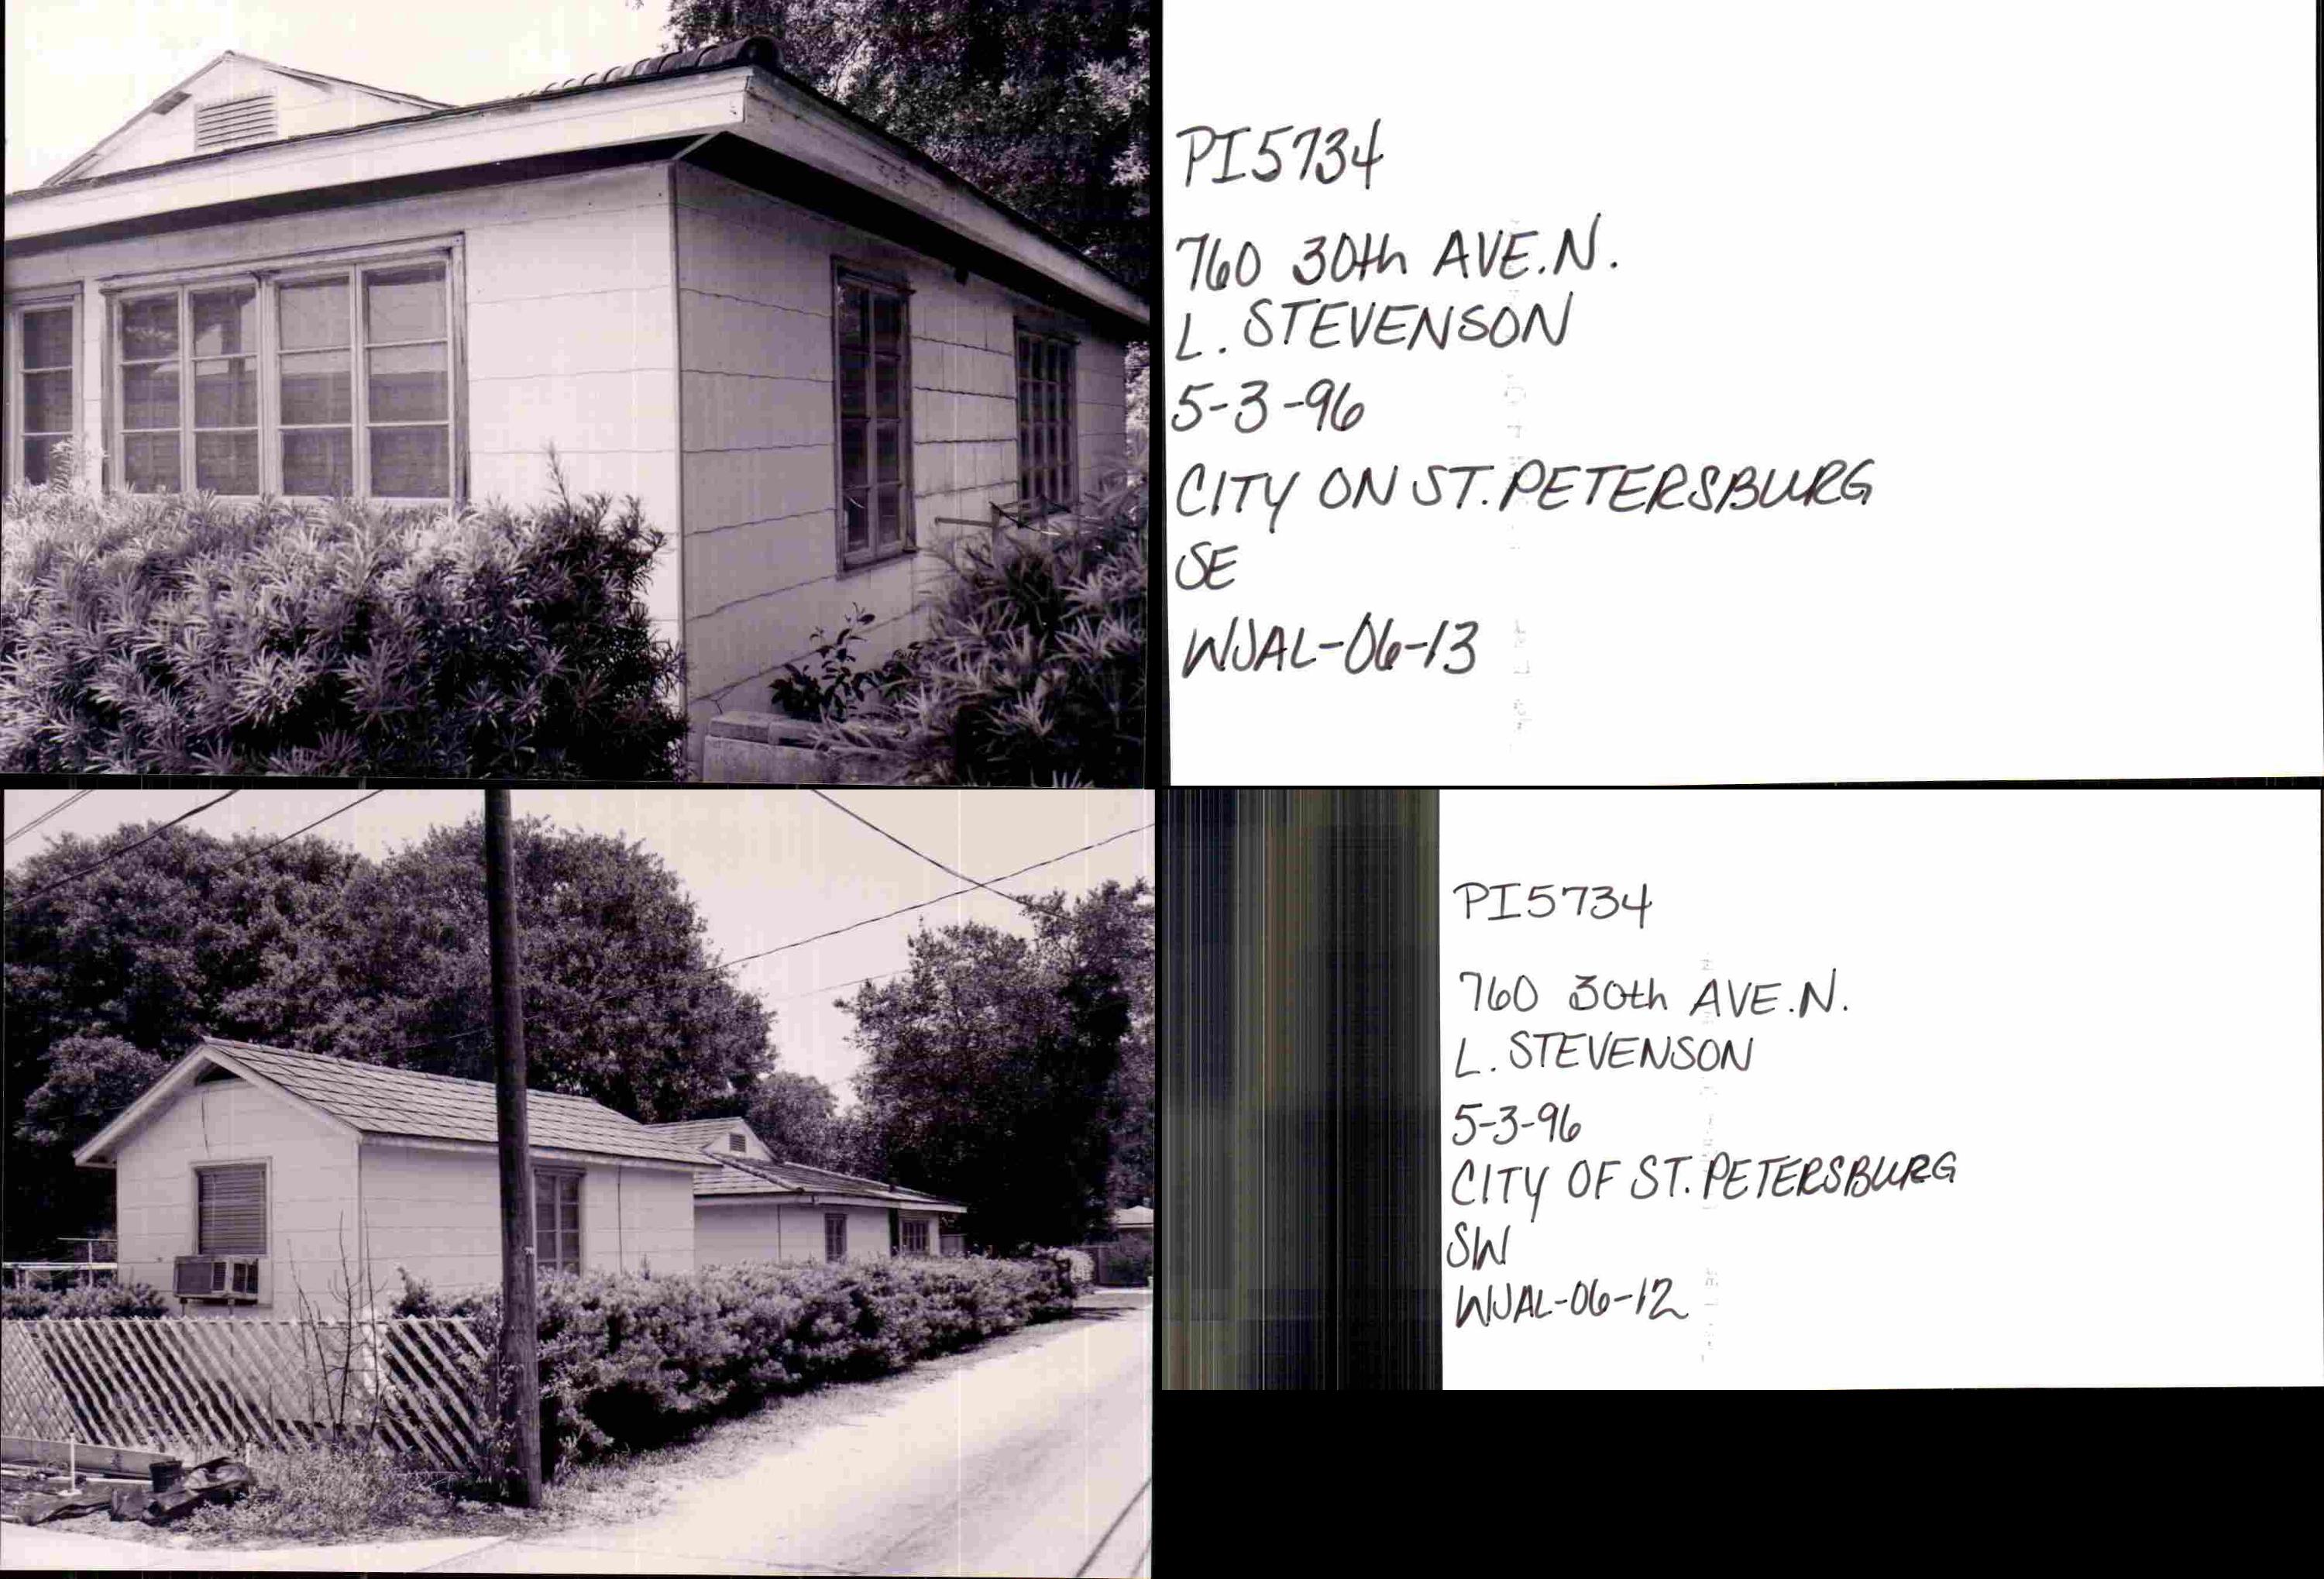 PI5734
760 30th AVE.N.
L. STEVENSON
5-3-96
CITY ON ST. PETERSBURG
SE
WJAL-06-13
PI5734
760 30th AVE.N.
L. STEVENSON
5-3-96
CITY OF ST. PETERSBURG
SW
WJAL-06-12